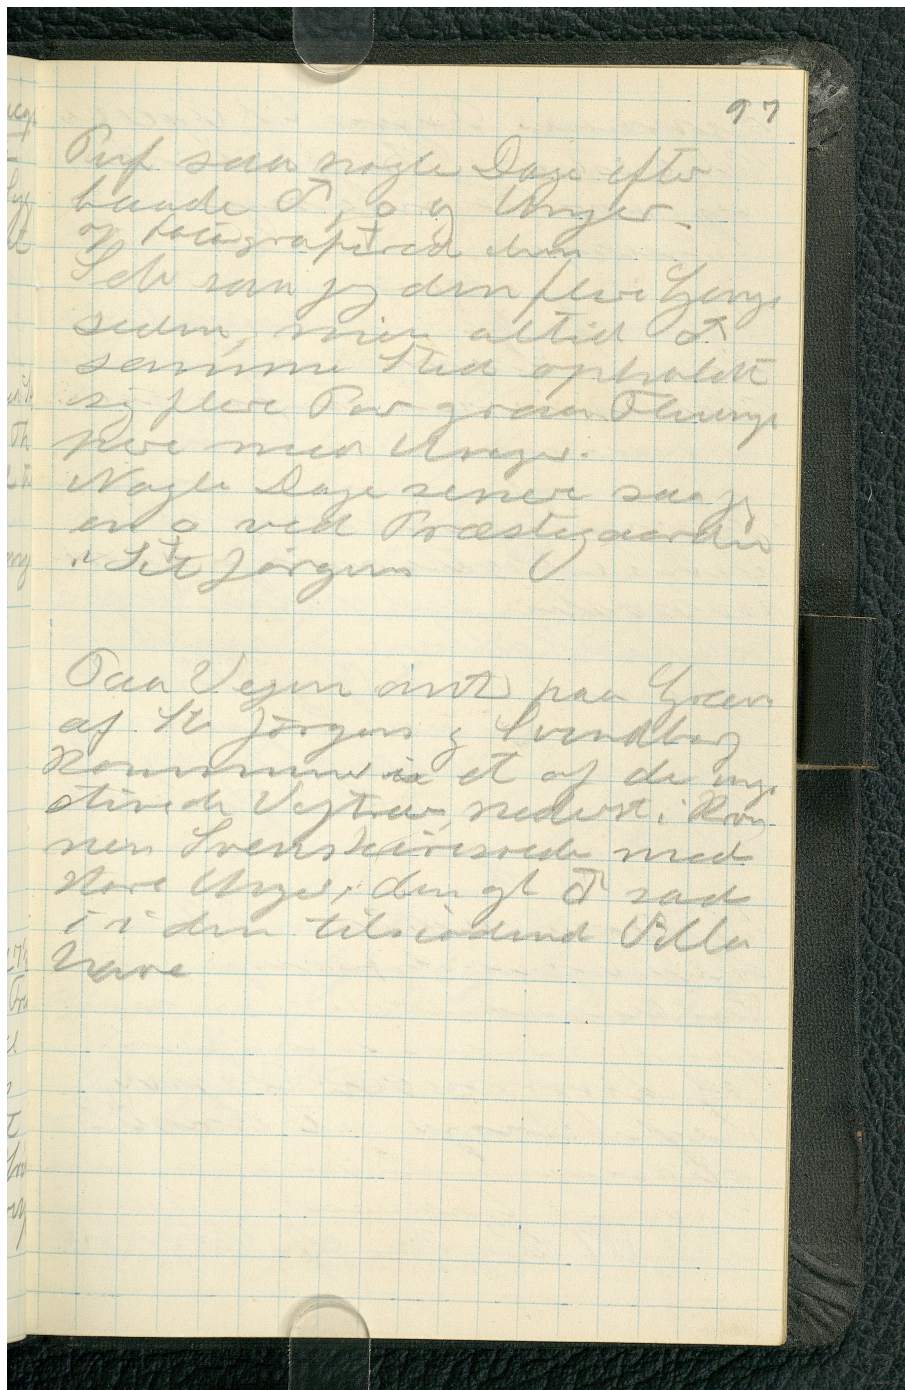 97
Puf saa nogle Dage efter
baade ♂, ♀ og Unger -
og fotograferede dem
Selv saa jeg den flere Gange
siden, men altid ♂
samme Sted opholdt
sig flere Par graa Flue
re med Unger.
Nogle Dage senere saa jeg
en ♀ ved Præstegaarden
i Sct Jørgens
Paa Vejen omt paa Græn
af St Jørgens og Svendborg
Kommuner et af de
Vejtræer, nederst i Kro
nen Svenskerirede med
store Unger; den gl ♂ sad
i den tilstødende Villa
Have